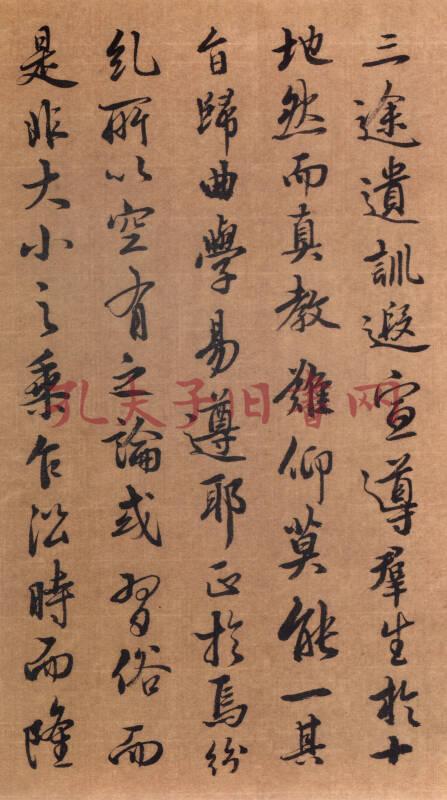 三途遺訓遐宣導羣生於十
地然而真教難仰莫能一其
旨歸曲學易遵耶正於焉紛
糺所以空有之論或習俗而
是非大小之乘乍沿時而隆
孔夫子旧書网